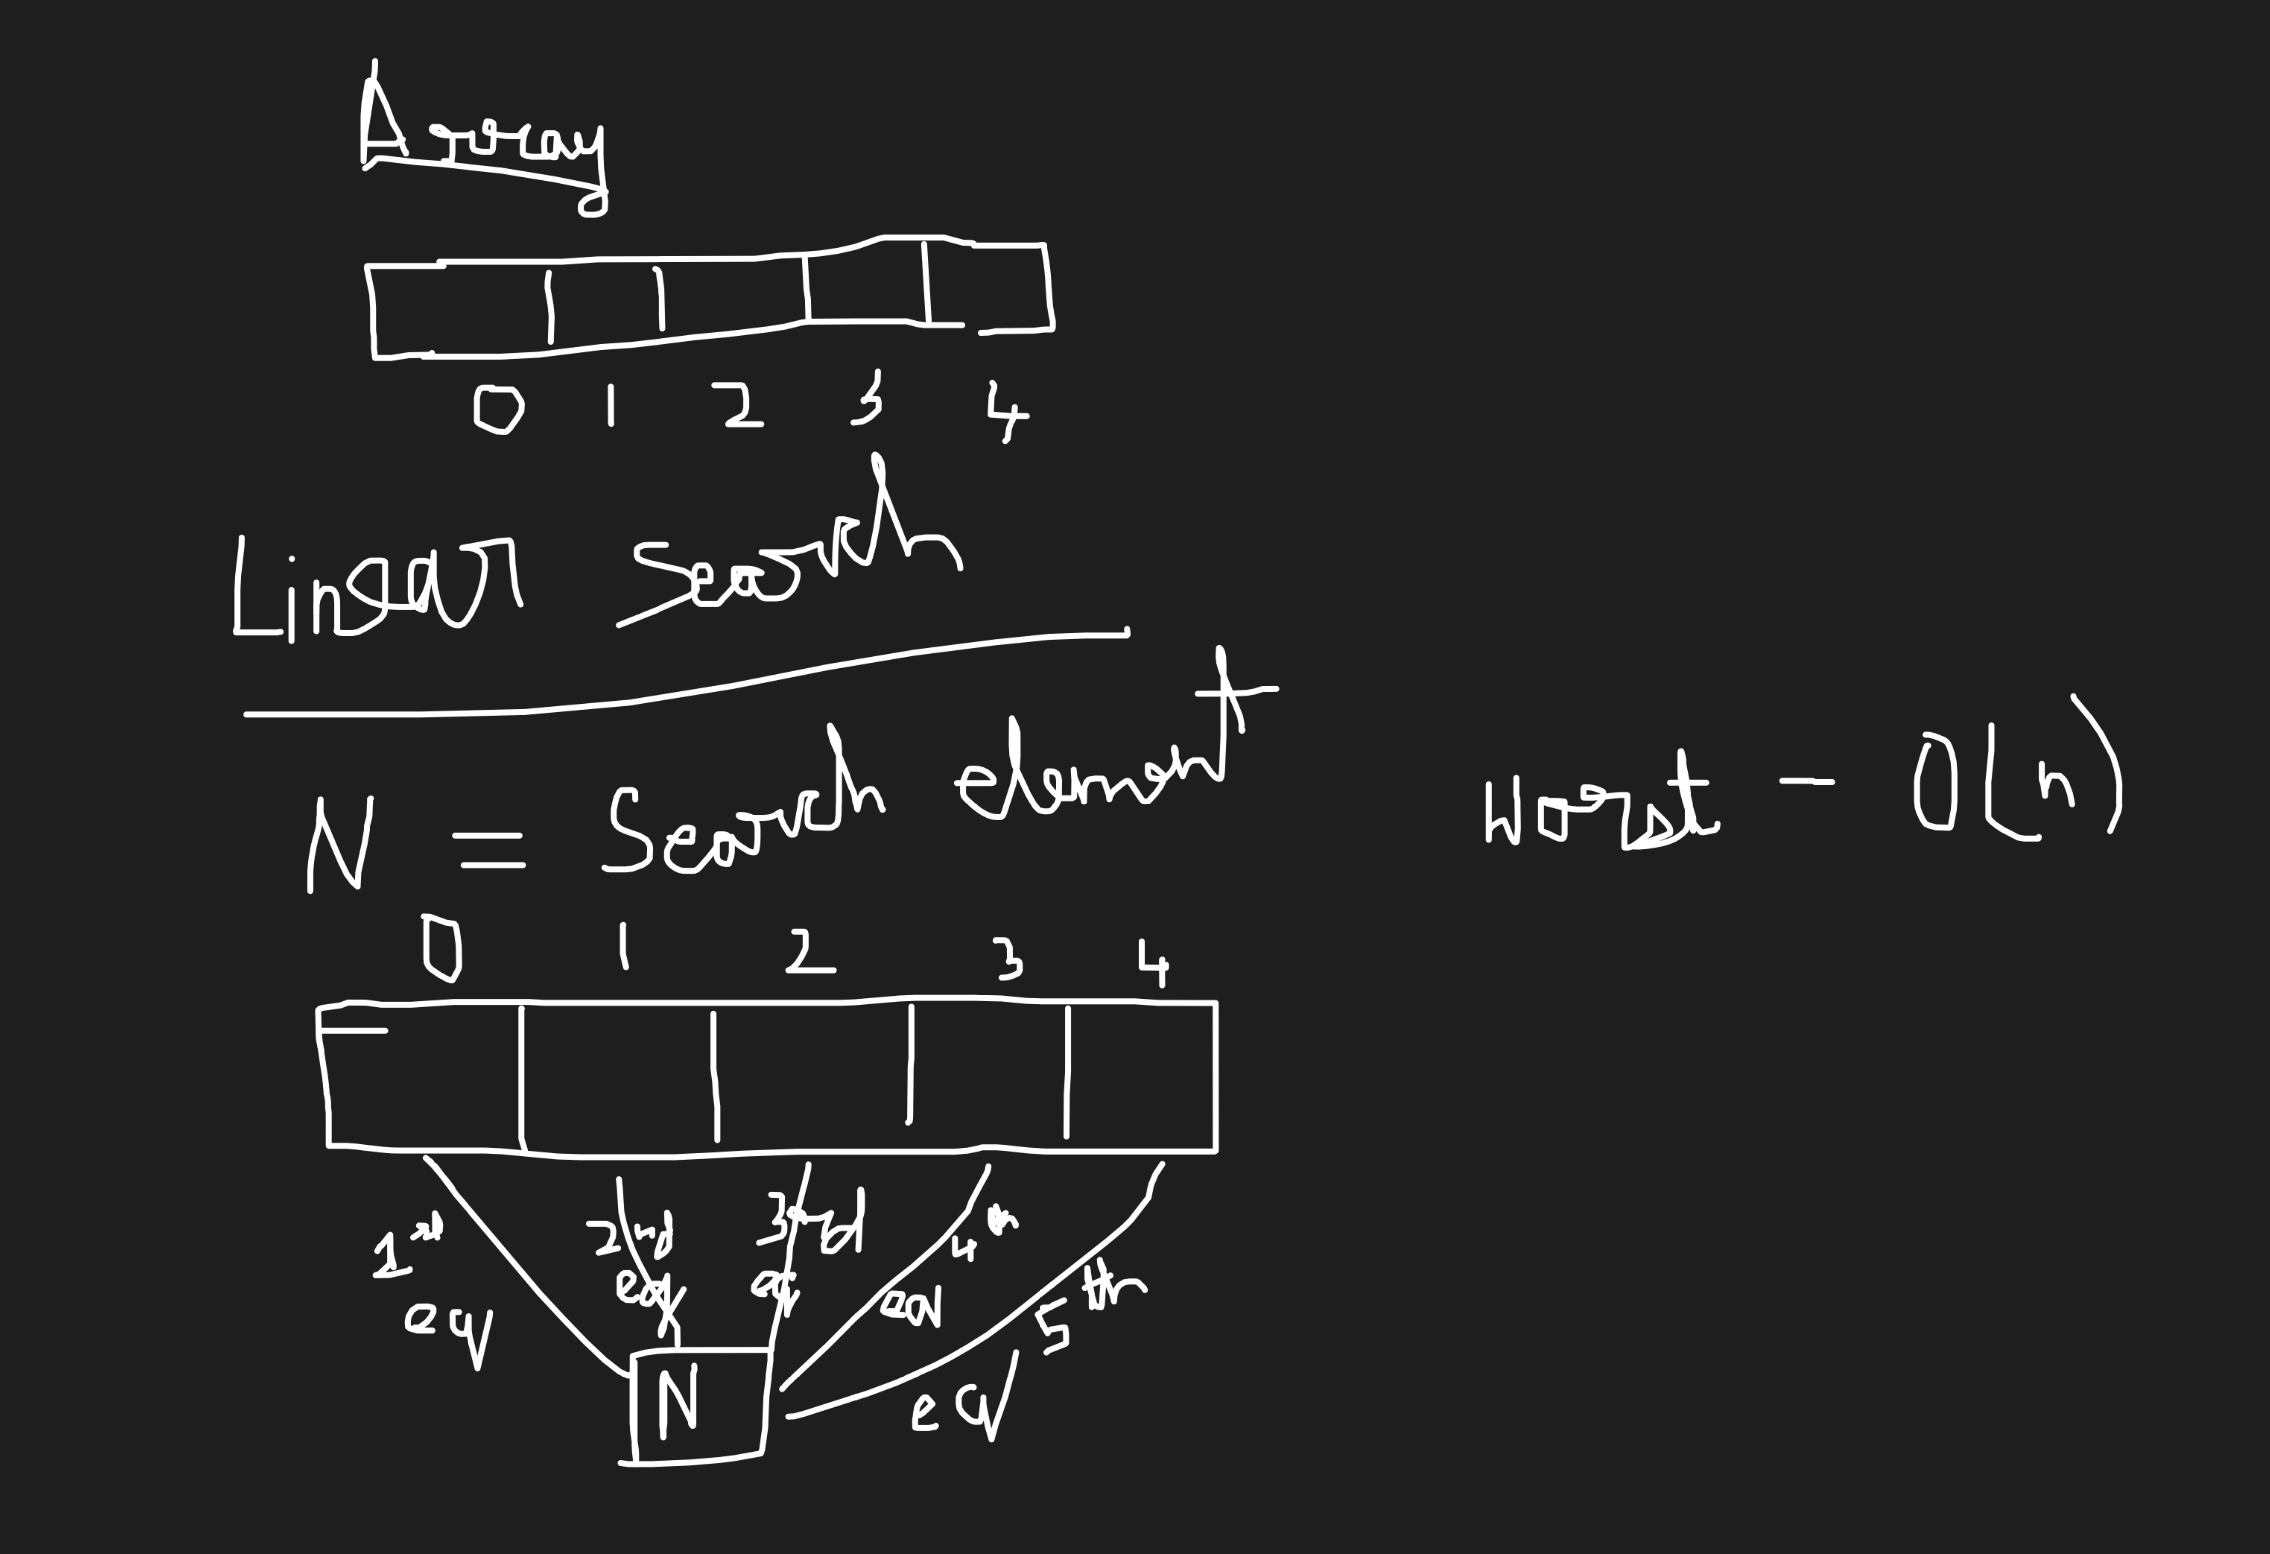 Array
0 1 2 3 4
Linear Search
N = Search element
Worst - O(n)
0 1 2 3 4
1st 2nd 3rd 4th
eq eq eq eq 5th
N eq